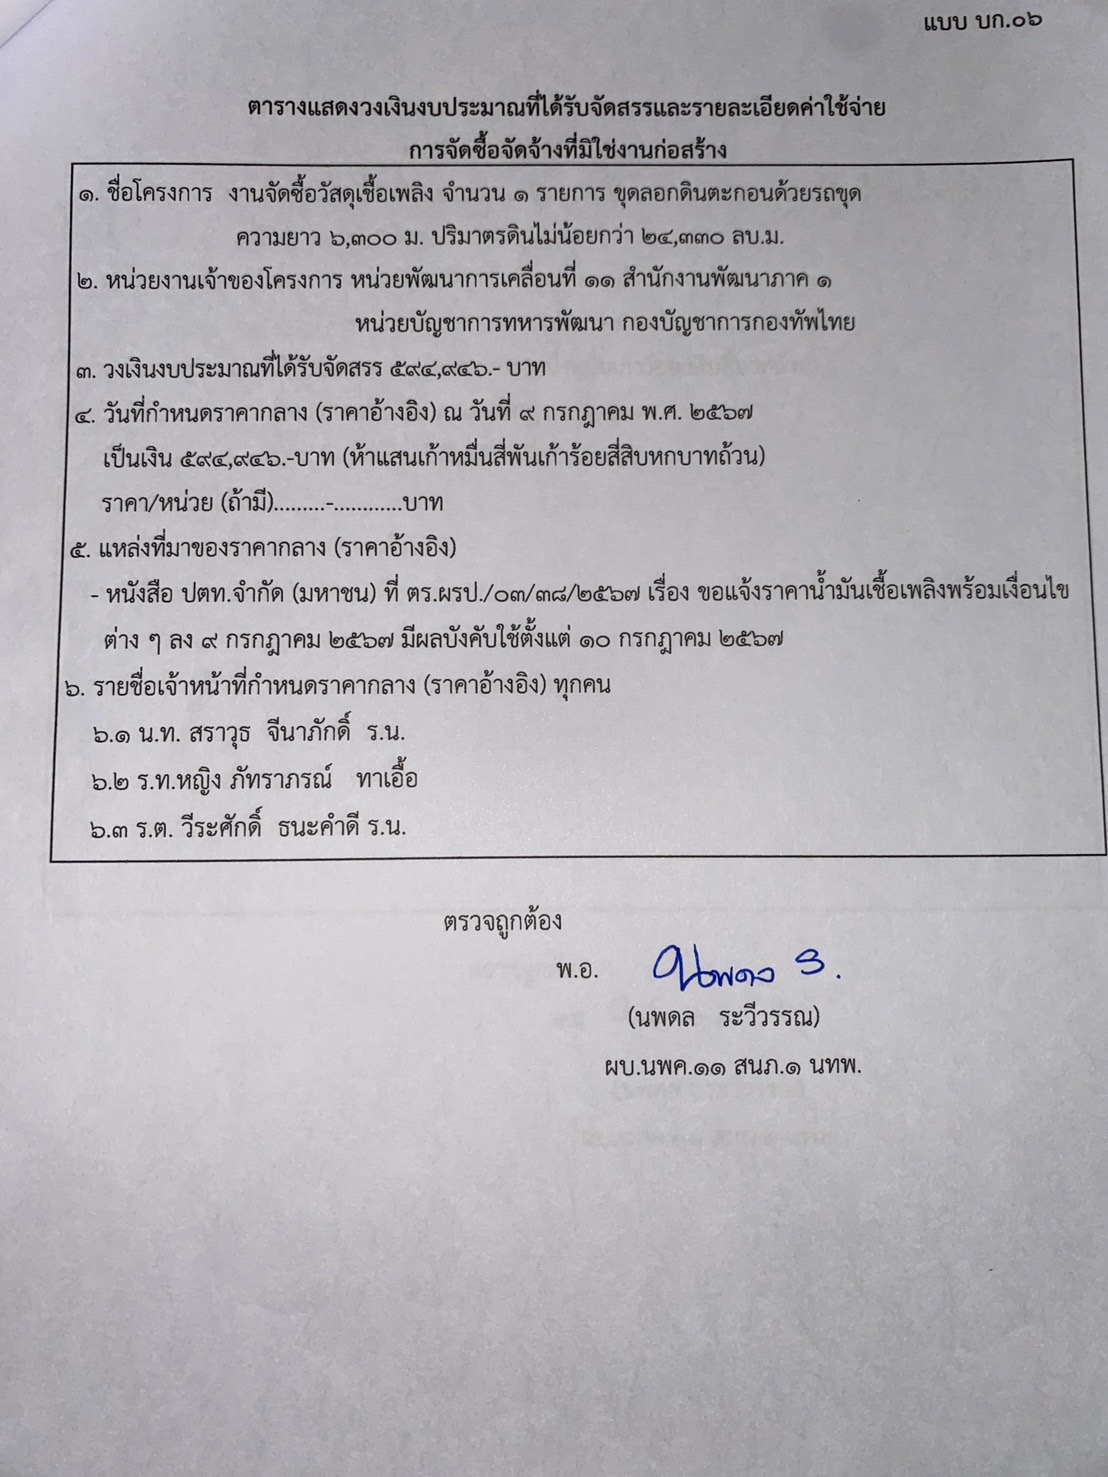 แบบ บก.๐๖
ตารางแสดงวงเงินงบประมาณที่ได้รับจัดสรรและรายละเอียดค่าใช้จ่าย
การจัดซื้อจัดจ้างที่มิใช่งานก่อสร้าง
๑. ชื่อโครงการ งานจัดซื้อวัสดุเชื้อเพลิง จำนวน ๑ รายการ ขุดลอกดินตะกอนด้วยรถขุด
ความยาว ๖,๓๐๐ ม. ปริมาตรดินไม่น้อยกว่า ๒๔,๓๓๐ ลบ.ม.
๒. หน่วยงานเจ้าของโครงการ หน่วยพัฒนาการเคลื่อนที่ ๑๑ สำนักงานพัฒนาภาค ๑
หน่วยบัญชาการทหารพัฒนา กองบัญชาการกองทัพไทย
๓. วงเงินงบประมาณที่ได้รับจัดสรร ๕๙๔,๙๔๖.- บาท
๔. วันที่กำหนดราคากลาง (ราคาอ้างอิง) ณ วันที่ ๙ กรกฎาคม พ.ศ. ๒๕๖๗
เป็นเงิน ๕๙๔,๙๔๖.-บาท (ห้าแสนเก้าหมื่นสี่พันเก้าร้อยสี่สิบหกบาทถ้วน)
ราคา/หน่วย (ถ้ามี).........-............บาท
๕. แหล่งที่มาของราคากลาง (ราคาอ้างอิง)
- หนังสือ ปตท.จำกัด (มหาชน) ที่ ตร.ผรป./๐๓/๓๘/๒๕๖๗ เรื่อง ขอแจ้งราคาน้ำมันเชื้อเพลิงพร้อมเงื่อนไข
ต่าง ๆ ลง ๙ กรกฎาคม ๒๕๖๗ มีผลบังคับใช้ตั้งแต่ ๑๐ กรกฎาคม ๒๕๖๗
๖. รายชื่อเจ้าหน้าที่กำหนดราคากลาง (ราคาอ้างอิง) ทุกคน
๖.๑ น.ท. สราวุธ จีนาภักดิ์ ร.น.
๖.๒ ร.ท.หญิง ภัทราภรณ์ ทาเอื้อ
๖.๓ ร.ต. วีระศักดิ์ ธนะคำดี ร.น.
ตรวจถูกต้อง
พ.อ. นพดล ร.
(นพดล ระวีวรรณ)
ผบ.นพค.๑๑ สนภ.๑ นทพ.